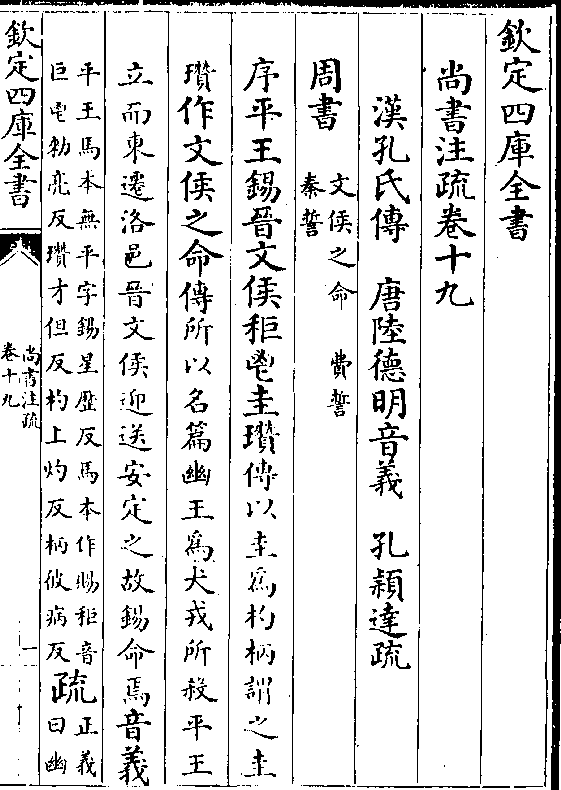 欽定四庫全書
尚書注疏卷十九
漢孔氏傳　唐陸德明音義　孔穎達疏
周書
文侯之命　費誓
秦誓
序平王錫晉文侯秬鬯圭瓚傳以圭為杓柄謂之圭
瓚作文侯之命傳所以名篇幽王為犬戎所殺平王
立而東遷洛邑晉文侯迎送安定之故錫命焉音義
平王馬本無平字錫星歷反馬本作賜秬音
巨鬯勑亮反瓚才但反杓上灼反柄彼病反
疏
正義
曰幽
欽定四庫全書
尚書注疏
卷十九
一